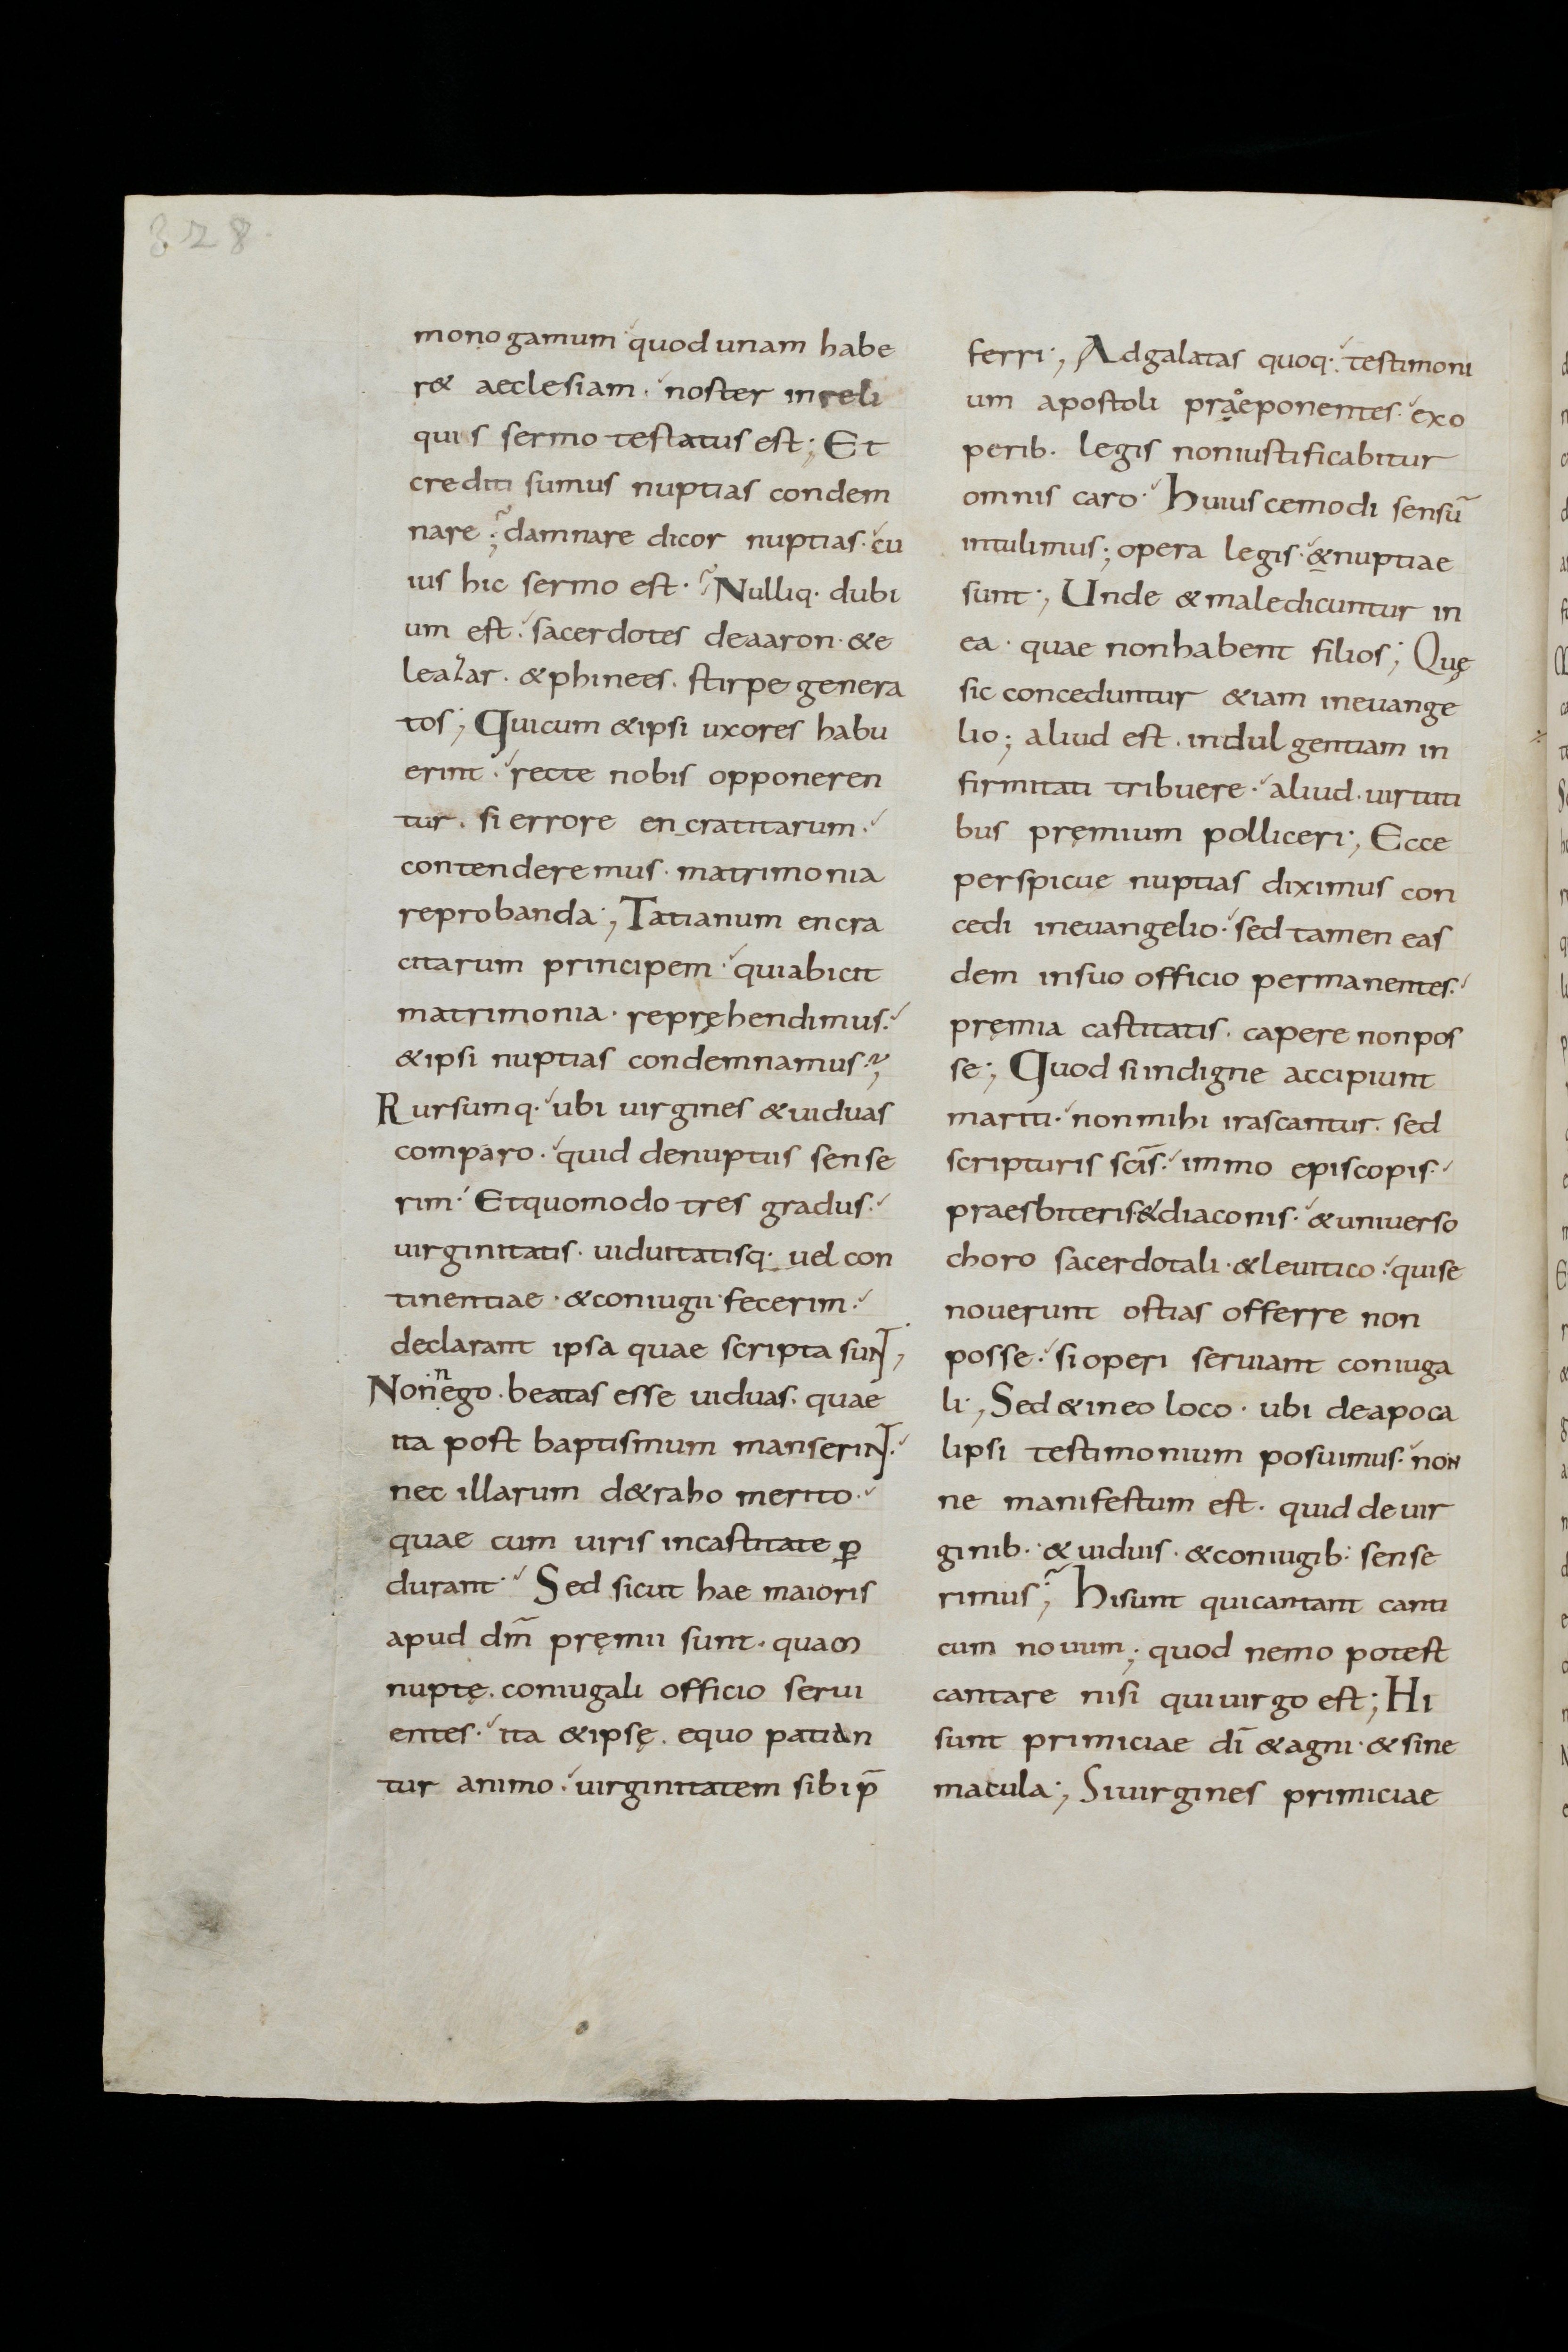 328
monogamum quod unam habe
r& aeclesiam · noster inreli
quis sermo testatus est; Et
crediti sumus nuptias condem
nare; damnare dicor nuptias · cu
ius hic sermo est · Nulliq· dubi
um est · sacerdotes deaaron · &e
leazar · &phinees · stirpe genera
tos; Quicum &ipsi uxores habu
erint · recte nobis opponeren
tur · si errore encratitarum ·
contenderemus · matrimonia
reprobanda; Tatianum encra
citarum principem · quiabicit
matrimonia · repręhendimus ·
&ipsi nuptias condemnamus;
Rursumq· ubi uirgines &uiduas
comparo · quid denuptiis sense
rim · Etquomodo tres gradus ·
uirginitatis · uiduitatisq· uel con
tinentiae · &coniugii fecerim ·
declarant ipsa quae scripta sunt;
Nonnego · beatas esse uiduas · quae
ita post baptismum manserint ·
nec illarum d&raho merito ·
quae cum uiris incastitate ꝑ
durant · Sed sicut hae maioris
apud dm̄ pręmii sunt · quam
nuptę · coniugali officio serui
entes · ita &ipsę · equo patian
tur animo · uirginitatem sibi p̄
ferri; Adgalatas quoq· testimoni
um apostoli praeponentes · exo
perib· legis noniustificabitur
omnis caro · Huiuscemodi sensū
intulimus; opera legis · &nuptiae
sunt; Unde &maledicuntur in
ea · quae nonhabent filios; Quę
sic conceduntur &iam ineuange
lio; aliud est · indulgentiam in
firmitati tribuere · aliud · uirtuti
bus pręmium polliceri; Ecce
perspicue nuptias diximus con
cedi ineuangelio · sed tamen eas
dem insuo officio permanentes ·
pręmia castitatis · capere nonpos
se; Quod siindigne accipiunt
mariti · nonmihi irascantur · sed
scripturis scīs · immo episcopis ·
praesbiteris&diaconis · &uniuerso
choro sacerdotali · &leuitico · quise
nouerunt ostias offerre non
posse · sioperi seruiant coniuga
li; Sed &ineo loco · ubi deapoca
lipsi testimonium posuimus · non
ne manifestum est · quid deuir
ginib· &uiduis · &coniugib· sense
rimus; Hisunt quicantant canti
cum nouum; quod nemo potest
cantare nisi quiuirgo est; Hi
sunt primiciae dī &agni · &sine
macula; Siuirgines primiciae